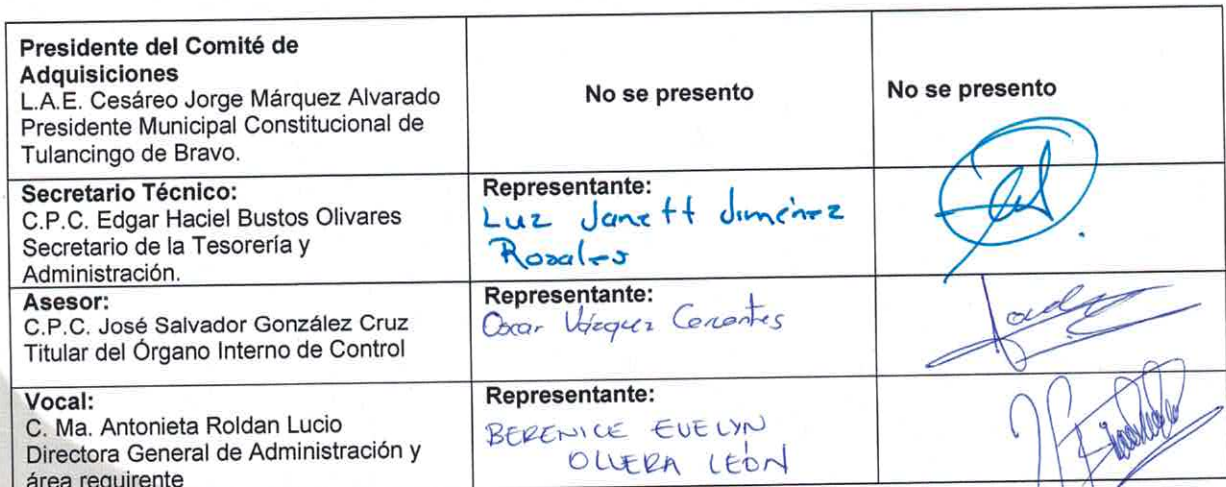 Presidente del Comité de
Adquisiciones
L.A.E. Cesáreo Jorge Márquez Alvarado
Presidente Municipal Constitucional de
Tulancingo de Bravo.
No se presento
No se presento
Secretario Técnico:
C.P.C. Edgar Haciel Bustos Olivares
Secretario de la Tesorería y
Administración.
Representante:
Luz Janett Jiménez
Rosales
Asesor:
C.P.C. José Salvador González Cruz
Titular del Órgano Interno de Control
Representante:
Oscar Vázquez Cervantes
Vocal:
C. Ma. Antonieta Roldan Lucio
Directora General de Administración y
área requirente
Representante:
BERENICE EVELYN
OLVERA LEÓN